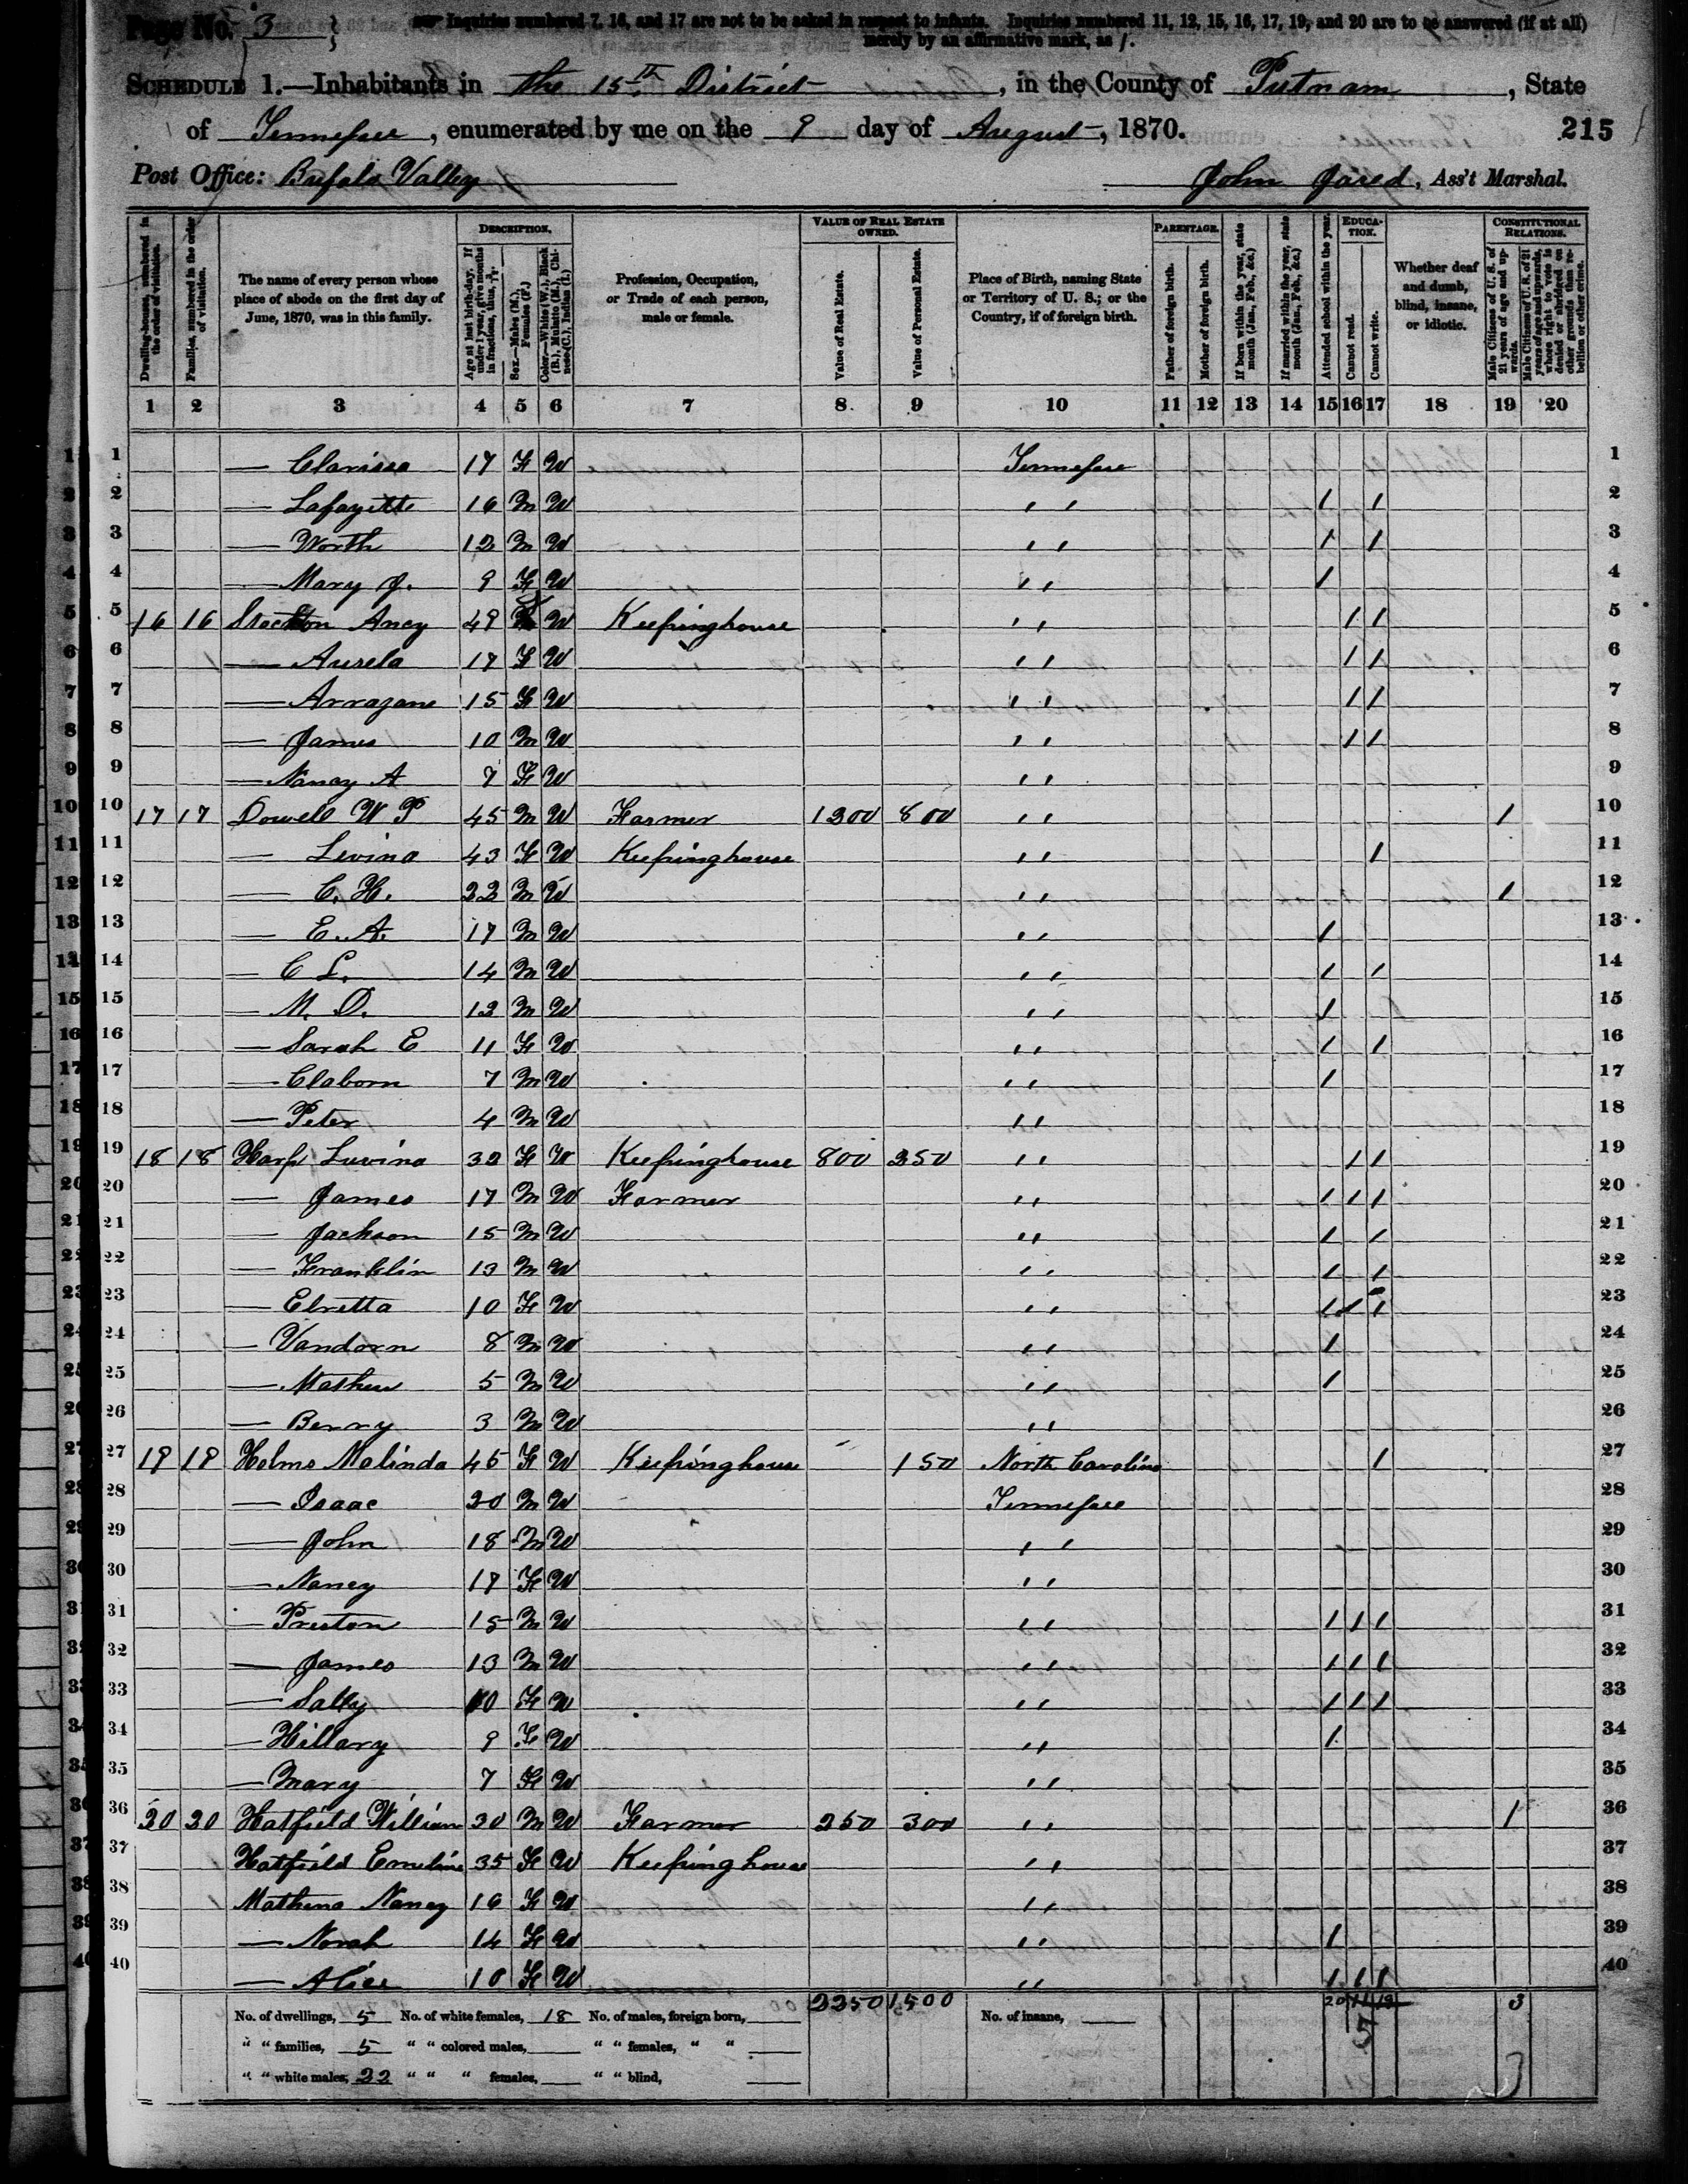 Page No. 3
Inquiries numbered 7, 16, and 17 are not to be asked in respect to infants. Inquiries numbered 11, 12, 15, 16, 17, 19, and 20 are to be answered (if at all)
merely by an affirmative mark, as /.
SCHEDULE 1.—Inhabitants in the 15th District, in the County of Putnam, State
of Tennessee, enumerated by me on the 9 day of August, 1870.
215
Post Office: Bufalo Valley
John Jared, Ass't Marshal.
Dwelling-houses, numbered in the order of visitation.
Families, numbered in the order of visitation.
The name of every person whose place of abode on the first day of June, 1870, was in this family.
DESCRIPTION.
Age at last birth-day. If under 1 year, give months in fractions, thus, 3/12.
Sex.—Males (M.), Females (F.)
Color.—White (W.), Black (B.), Mulatto (M.), Chinese (C.), Indian (I.)
Profession, Occupation, or Trade of each person, male or female.
VALUE OF REAL ESTATE OWNED.
Value of Real Estate.
Value of Personal Estate.
Place of Birth, naming State or Territory of U. S.; or the Country, if of foreign birth.
PARENTAGE.
Father of foreign birth.
Mother of foreign birth.
If born within the year, state month (Jan., Feb., &c.)
If married within the year, state month (Jan., Feb., &c.)
EDUCATION.
Attended school within the year.
Cannot read.
Cannot write.
Whether deaf and dumb, blind, insane, or idiotic.
CONSTITUTIONAL RELATIONS.
Male Citizens of U. S. of 21 years of age and upwards.
Male Citizens of U. S. of 21 years of age and upwards, whose right to vote is denied or abridged on other grounds than rebellion or other crime.
1 2 3 4 5 6 7 8 9 10 11 12 13 14 15 16 17 18 19 20
1 — Clarissa 17 F W Tennessee 1
2 — Lafayette 16 M W " / / 2
3 — Worth 12 M W " / / 3
4 — Mary J. 9 F W " / 4
5 16 16 Stockton Ancy 49 F W Keepinghouse " / / 5
6 — Aurela 17 F W " / / 6
7 — Arrazane 15 F W " / / 7
8 — James 10 M W " / / 8
9 — Nancy A 7 F W " 9
10 17 17 Dowell W P 45 M W Farmer 1200 800 " / 10
11 — Levina 43 F W Keepinghouse " / 11
12 — C. H. 22 M W " / 12
13 — E. A. 17 M W " / 13
14 — C L. 14 M W " / / 14
15 — M. D. 12 M W " / 15
16 — Sarah E 11 F W " / / 16
17 — Claborn 7 M W " / 17
18 — Peter 4 M W " 18
19 18 18 Harp Luvina 32 F W Keepinghouse 800 250 " / / 19
20 — James 17 M W Farmer " / / / 20
21 — Jackson 15 M W " / / 21
22 — Franklin 13 M W " / / 22
23 — Elretta 10 F W " / / / 23
24 — Vandorn 8 M W " / 24
25 — Mathew 5 M W " / 25
26 — Berry 3 M W " 26
27 19 19 Holms Malinda 45 F W Keepinghouse 150 North Carolina / 27
28 — Isaac 20 M W Tennessee 28
29 — John 18 M W " 29
30 — Nancy 17 F W " 30
31 — Preston 15 M W " / / / 31
32 — James 13 M W " / / / 32
33 — Sally 10 F W " / / / 33
34 — Hillary 9 F W " / 34
35 — Mary 7 F W " 35
36 20 20 Hatfield William 30 M W Farmer 250 300 " / 36
37 Hatfield Emeline 35 F W Keepinghouse " 37
38 Mathena Nancy 16 F W " 38
39 — Norah 14 F W " / 39
40 — Alice 10 F W " / / / 40
No. of dwellings, 5 No. of white females, 18 No. of males, foreign born, 2250 1500 No. of insane, 20 3
" " families, 5 " " colored males, " " females, " "
" " white males, 22 " " " females, " " blind,